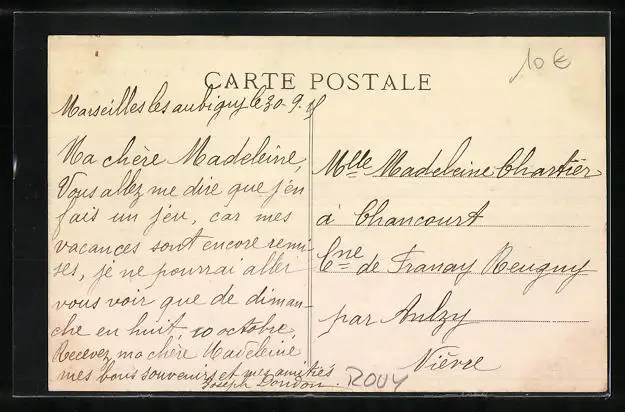 10 €
CARTE POSTALE
Marseilles les aubigny le 30.9.
Ma chère Madeleine,
Vous allez me dire que j'en
fais un jeu, car mes
vacances sont encore remi-
ses, je ne pourrai aller
vous voir que de diman-
che en huit, 10 octobre,
Recevez ma chère Madeleine
mes bons souvenirs et mes amitiés
Joseph
Mlle Madeleine Chartier
à Chancourt
Cne de Franay Reugny
par Anlzy
Nièvre
ROUY